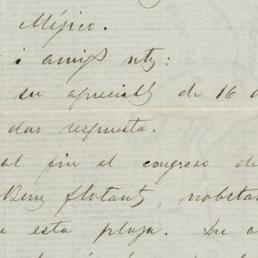 Méjico.
i amigo
su apreciable de 16 d
dar respuesta.
al fin el congreso de
flotant
e esta plaza. Su a